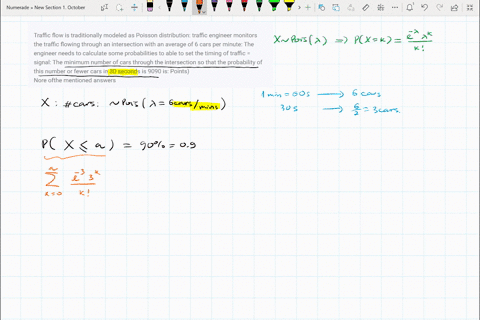 Numerade » New Section 1. October
Traffic flow is traditionally modeled as Poisson distribution: traffic engineer monitors
the traffic flowing through an intersection with an average of 6 cars per minute: The
engineer needs to calculate some probabilities to able to set the timing of traffic >
signal: The minimum number of cars through the intersection so that the probability of
this number or fewer cars in 30 seconds is 9090 is: Points)
Nore ofthe mentioned answers
X ~ Pois(λ) ⇒ P(X=k) = e^-λ λ^k / k!
X: #cars: ~ Pois(λ = 6cars/mins)
1min = 60s → 6 cars
30s → 6/2 = 3cars.
P(X ≤ a) = 90% = 0.9